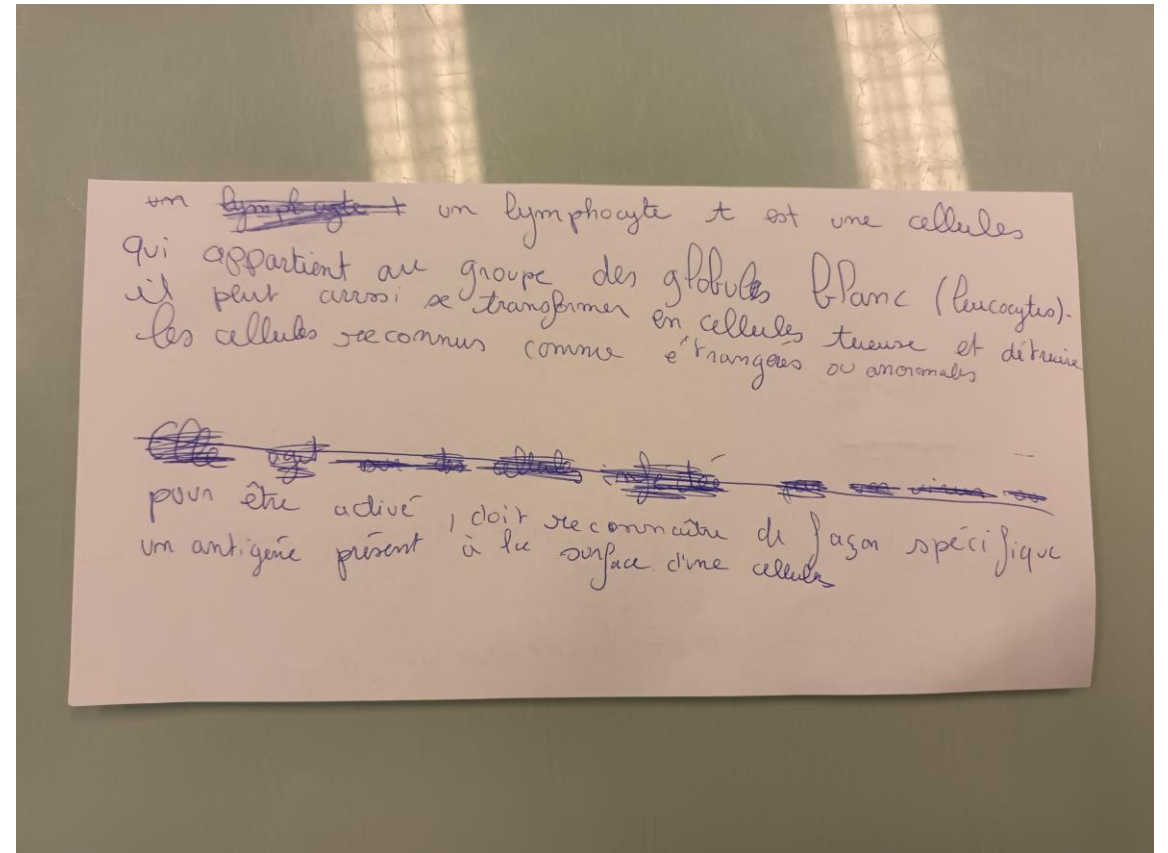 un lymphocyte t un lymphocyte t est une cellules
qui appartient au groupe des globules blanc (leucocytes).
il peut aussi se transformer en cellules tueuse et détruire
les cellules reconnus comme étrangères ou anormales
Elle agit sur des cellules infectée par un virus ou
pour être activé, doit reconnaître de façon spécifique
un antigène présent à la surface d'une cellules